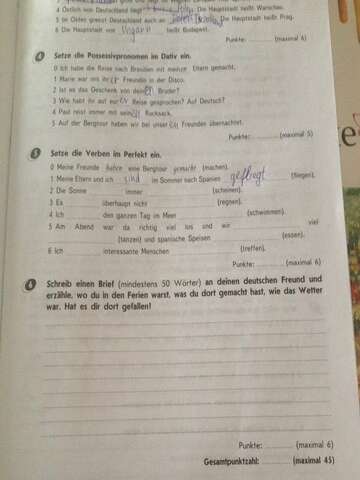 4 Östlich von Deutschland liegt Die Hauptstadt heißt Warschau.
5 Im Osten grenzt Deutschland auch an Die Hauptstadt heißt Prag.
6 Die Hauptstadt von Ungarn heißt Budapest.
Punkte: (maximal 6)
4 Setze die Possessivpronomen im Dativ ein.
0 Ich habe die Reise nach Brasilien mit meinen Eltern gemacht.
1 Marie war mit ihrer Freundin in der Disco.
2 Ist es das Geschenk von deinen Bruder?
3 Wie habt ihr auf eurer Reise gesprochen? Auf Deutsch?
4 Paul reist immer mit sein Rucksack.
5 Auf der Bergtour haben wir bei unser Freunden übernachtet.
Punkte: (maximal 5)
5 Setze die Verben im Perfekt ein.
0 Meine Freunde haben eine Bergtour gemacht (machen).
1 Meine Eltern und ich sind im Sommer nach Spanien gefliegt (fliegen).
2 Die Sonne immer (scheinen).
3 Es überhaupt nicht (regnen).
4 Ich den ganzen Tag im Meer (schwimmen).
5 Am Abend war da richtig viel los und wir viel
(tanzen) und spanische Speisen (essen).
6 Ich interessante Menschen (treffen).
Punkte: (maximal 6)
6 Schreib einen Brief (mindestens 50 Wörter) an deinen deutschen Freund und
erzähle, wo du in den Ferien warst, was du dort gemacht hast, wie das Wetter
war. Hat es dir dort gefallen!
Punkte: (maximal 6)
Gesamtpunktzahl: (maximal 45)